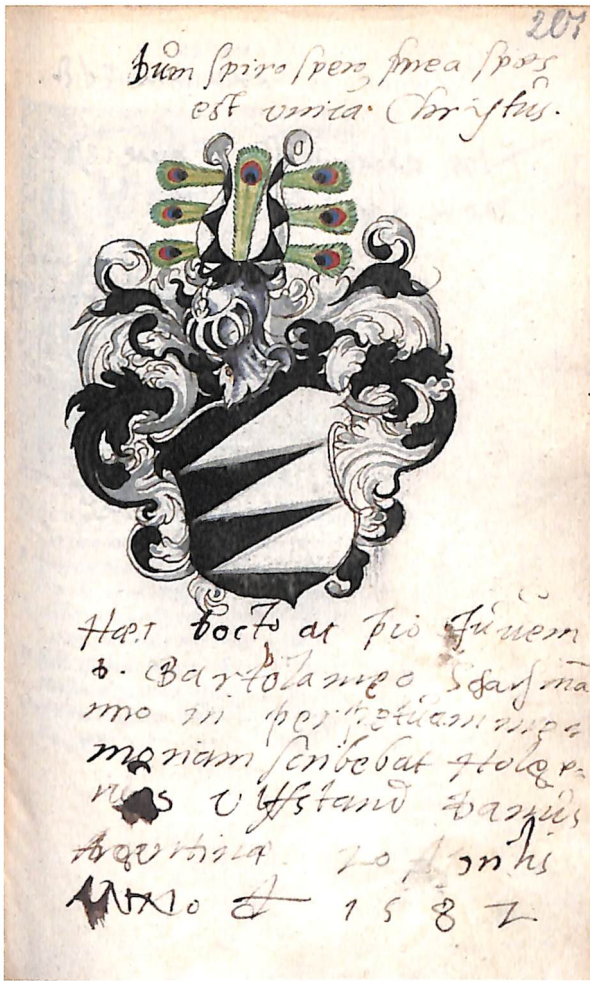 207
Dum spiro spero, mea spes
est unica Christus.
Hæc docto ac pio Juveni
D. Bartolameo
nno in perpetuam me
moriam scribebat Holge
rus Ulfstand Danus
Argentinæ 20
ANNO 1587